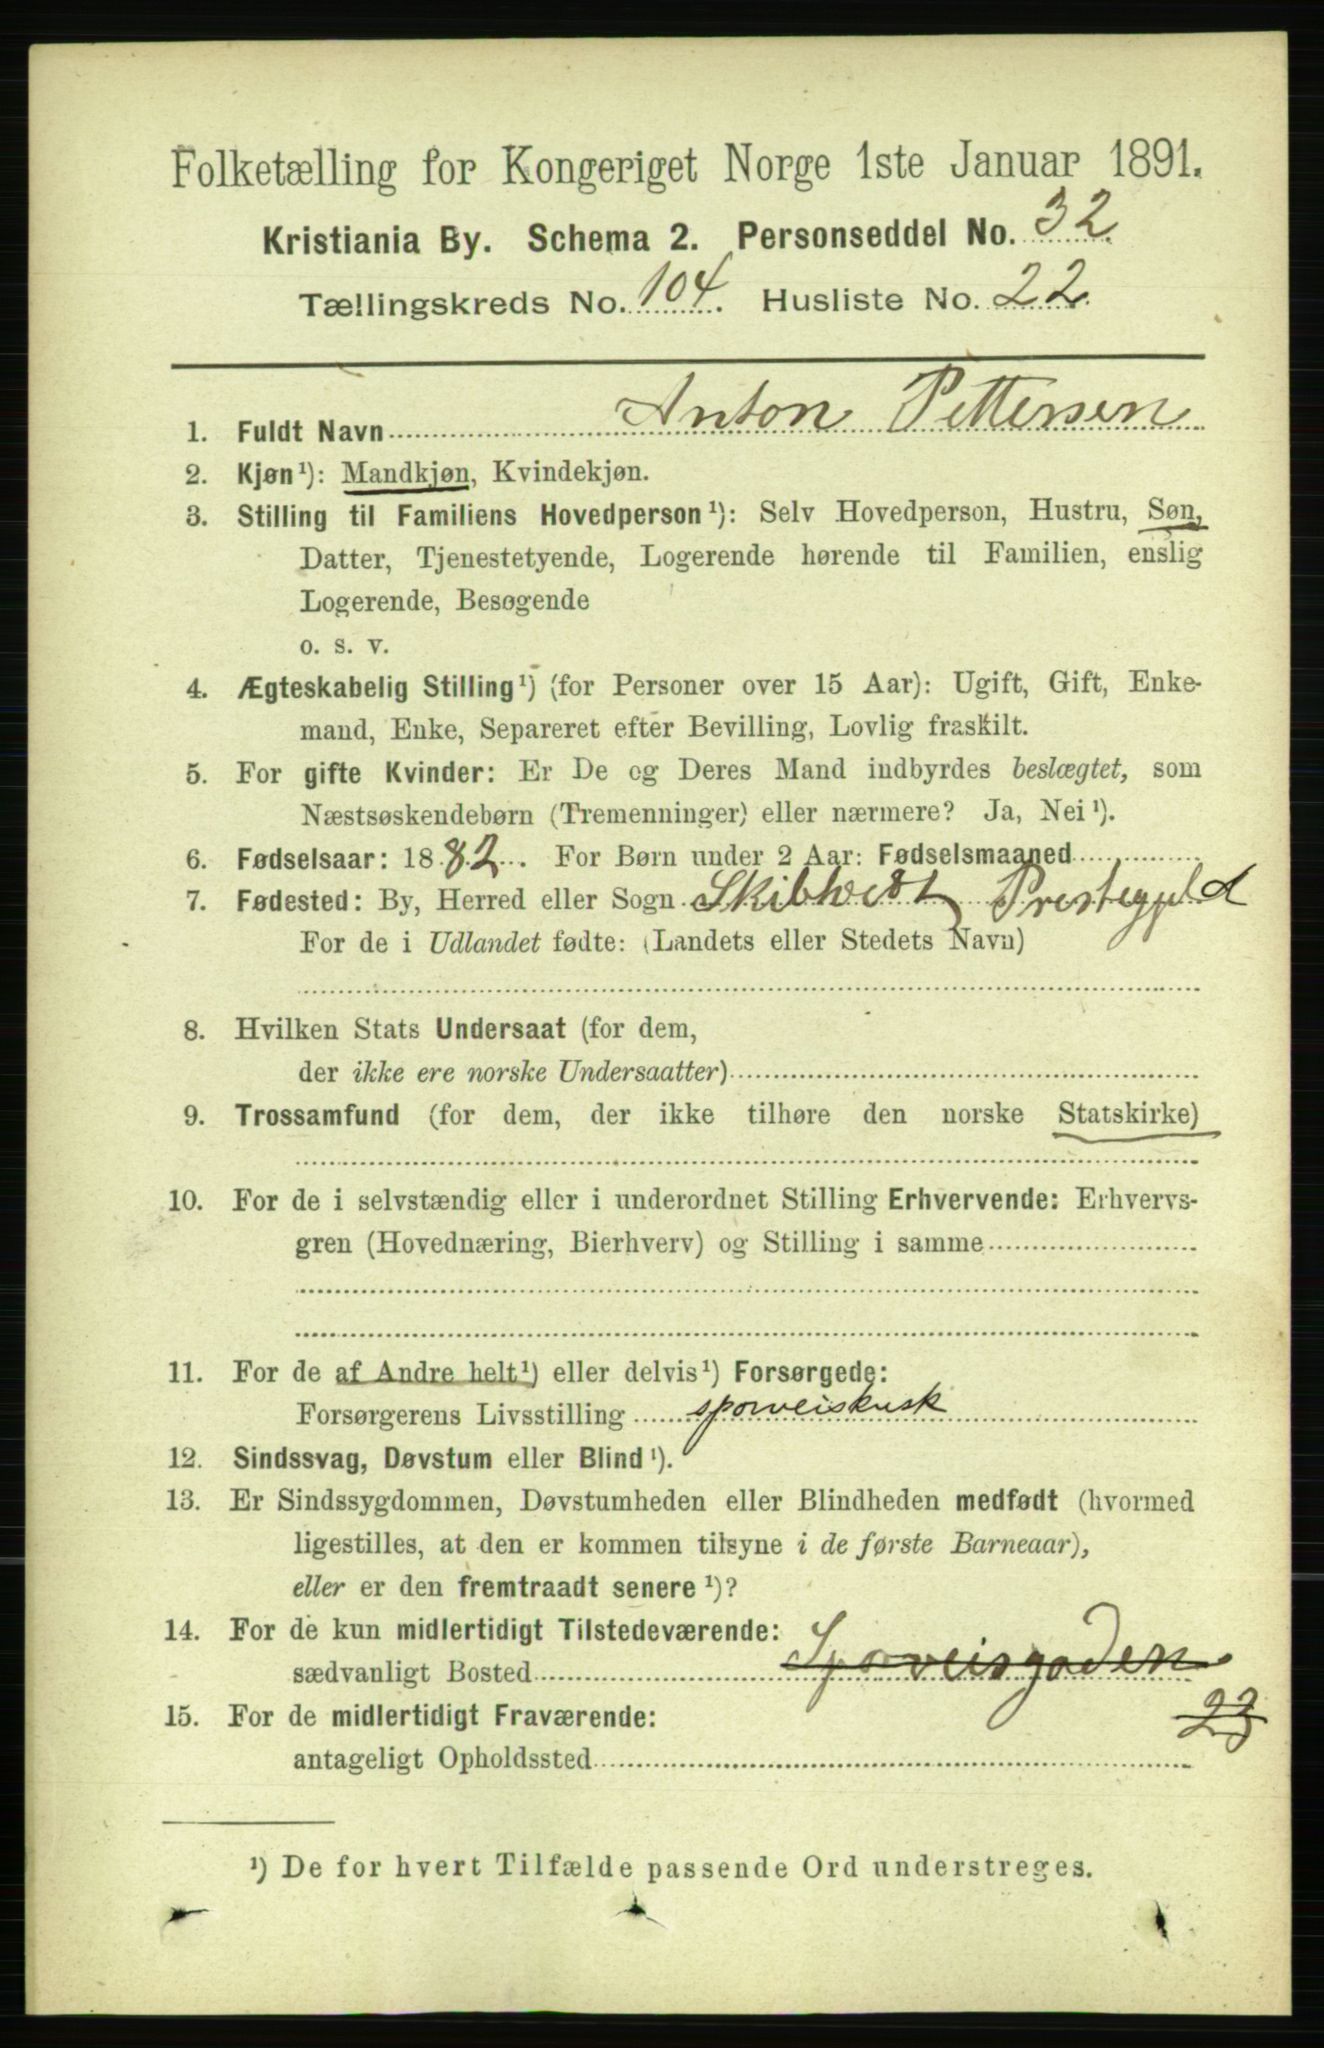 Folketælling for Kongeriget Norge 1ste Januar 1891.
Kristiania By. Schema 2. Personseddel No. 32.
Tællingskreds No. 104. Husliste No. 22.
1. Fuldt Navn Anton Pettersen
2. Kjøn¹): Mandkjøn, Kvindekjøn.
3. Stilling til Familiens Hovedperson¹): Selv Hovedperson, Hustru, Søn,
Datter, Tjenestetyende, Logerende hørende til Familien, enslig
Logerende, Besøgende
o. s. v.
4. Ægteskabelig Stilling¹) (for Personer over 15 Aar): Ugift, Gift, Enke-
mand, Enke, Separeret efter Bevilling, Lovlig fraskilt.
5. For gifte Kvinder: Er De og Deres Mand indbyrdes beslægtet, som
Næstsøskendebørn (Tremenninger) eller nærmere? Ja, Nei¹).
6. Fødselsaar: 1882. For Børn under 2 Aar: Fødselsmaaned
7. Fødested: By, Herred eller Sogn Skibtvedt Prestegjeld
For de i Udlandet fødte: (Landets eller Stedets Navn)
8. Hvilken Stats Undersaat (for dem,
der ikke ere norske Undersaatter)
9. Trossamfund (for dem, der ikke tilhøre den norske Statskirke)
10. For de i selvstændig eller i underordnet Stilling Erhvervende: Erhvervs-
gren (Hovednæring, Bierhverv) og Stilling i samme
11. For de af Andre helt¹) eller delvis¹) Forsørgede:
Forsørgerens Livsstilling sporveiskusk
12. Sindssvag, Døvstum eller Blind¹).
13. Er Sindssygdommen, Døvstumheden eller Blindheden medfødt (hvormed
ligestilles, at den er kommen tilsyne i de første Barneaar),
eller er den fremtraadt senere¹)?
14. For de kun midlertidigt Tilstedeværende:
sædvanligt Bosted Sporveisgaden
23
15. For de midlertidigt Fraværende:
antageligt Opholdssted
¹) De for hvert Tilfælde passende Ord understreges.